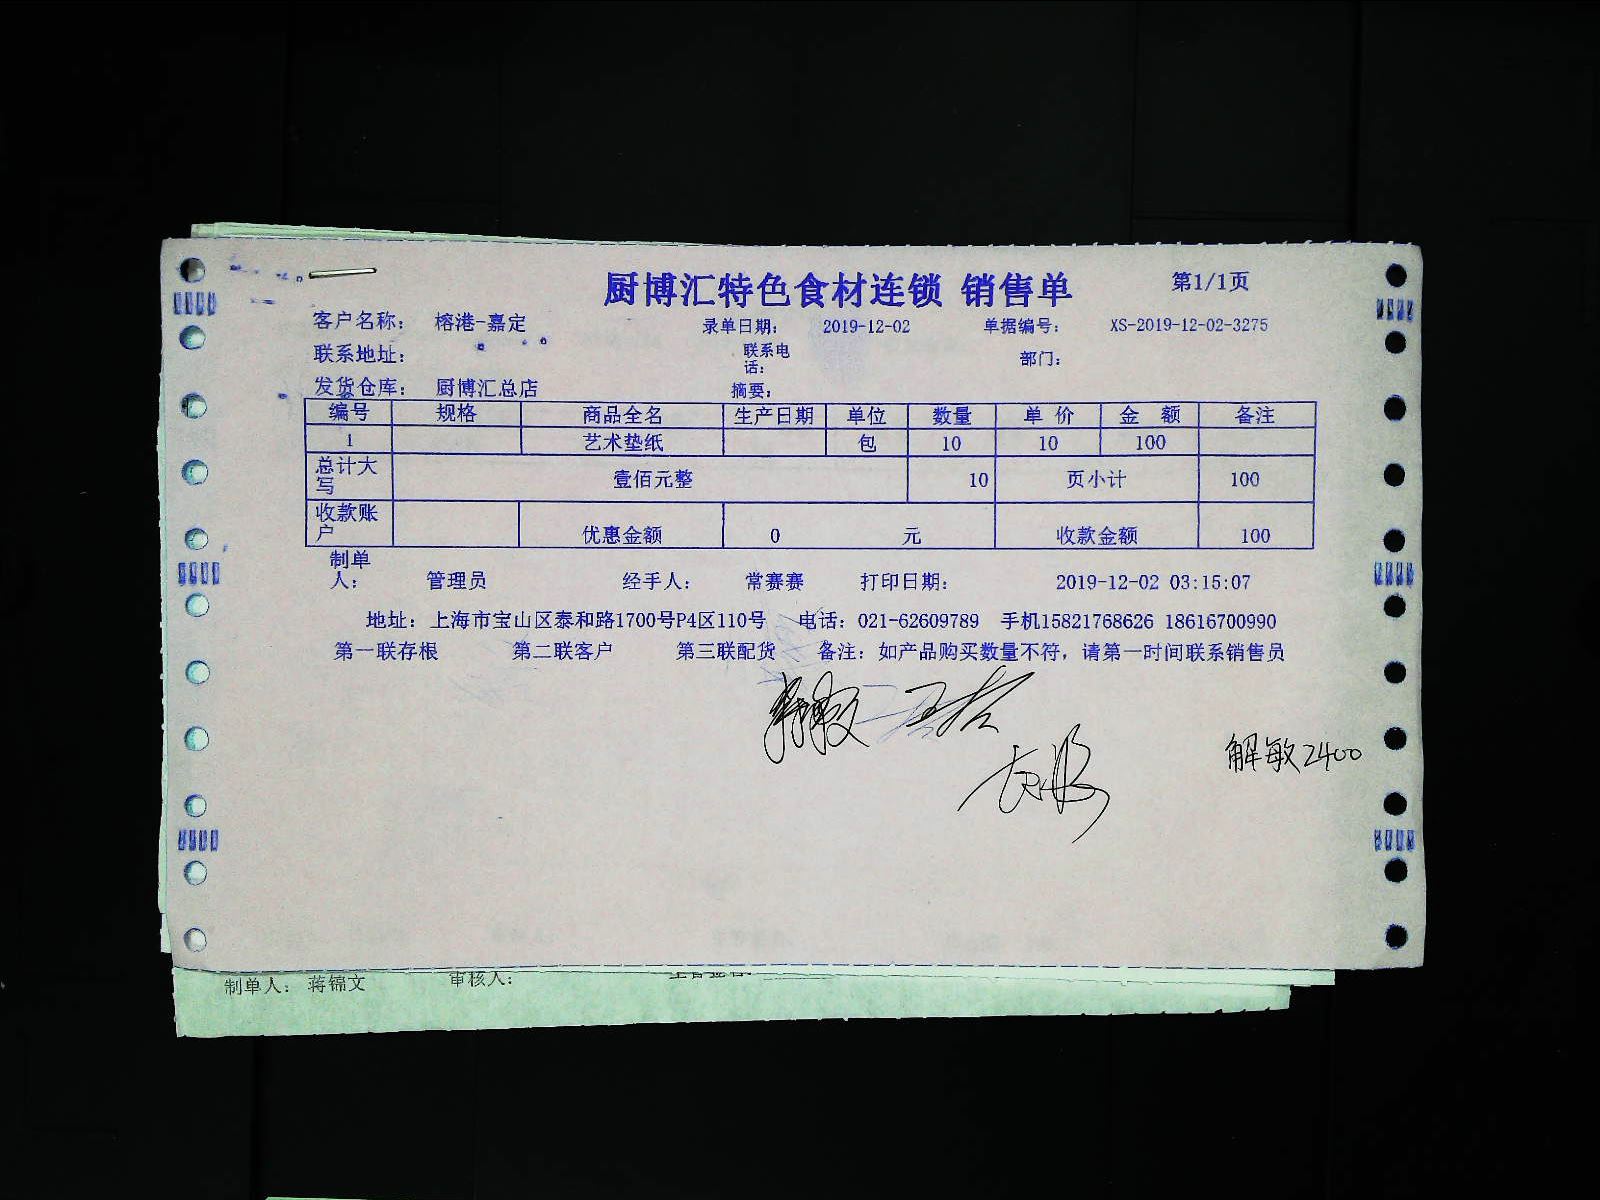 厨博汇特色食材连锁 销售单 第1/1页
客户名称： 榕港-嘉定 录单日期： 2019-12-02 单据编号： XS-2019-12-02-3275
联系地址： 联系电话： 部门：
发货仓库： 厨博汇总店 摘要：
编号 规格 商品全名 生产日期 单位 数量 单价 金额 备注
1 艺术垫纸 包 10 10 100
总计大写 壹佰元整 10 页小计 100
收款账户 优惠金额 0 元 收款金额 100
制单人： 管理员 经手人： 常赛赛 打印日期： 2019-12-02 03:15:07
地址：上海市宝山区泰和路1700号P4区110号 电话：021-62609789 手机15821768626 18616700990
第一联存根 第二联客户 第三联配货 备注：如产品购买数量不符，请第一时间联系销售员
解敏2400
制单人： 蒋锦文 审核人：